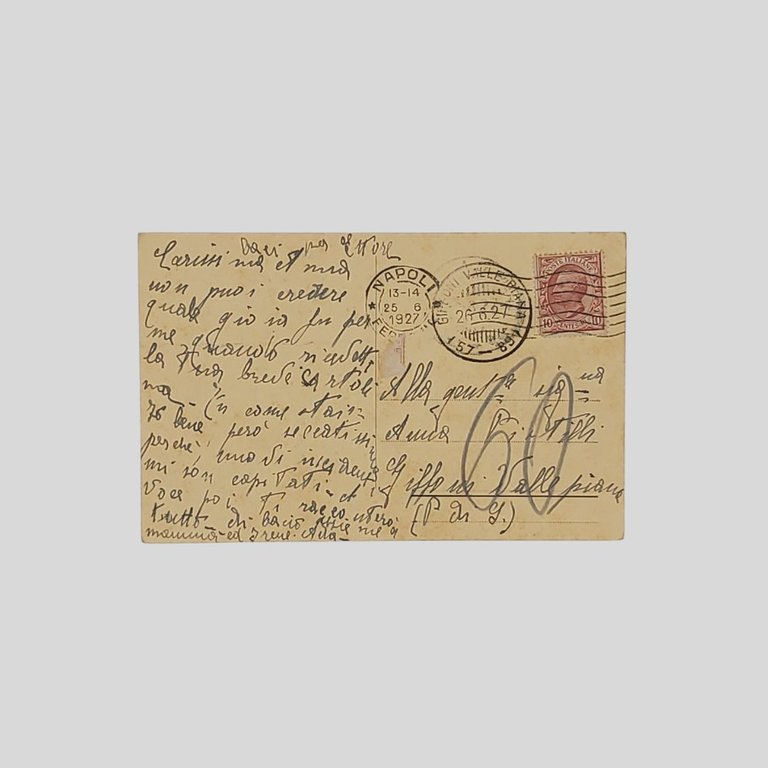 Baci per Ettore
Carissima Anna
non puoi credere
quale gioia fu per
me quando ricevetti
la tua breve cartoli
na. Io come stai?
Io bene, però seccatissi
perchè, uno di
mi son capitati
Voce poi ti racconterò
tutto. di baci
mamma ed Irene. Ada
NAPOLI
13-14
25 6
1927
FERROVIA
GIFFONI VALLE PIANA
26.6.27
157-894
POSTE ITALIANE
10 CENTESIMI 10
Alla gent.ma sig.na
Anna
Giffoni Vallepiana
(P di S.)
60